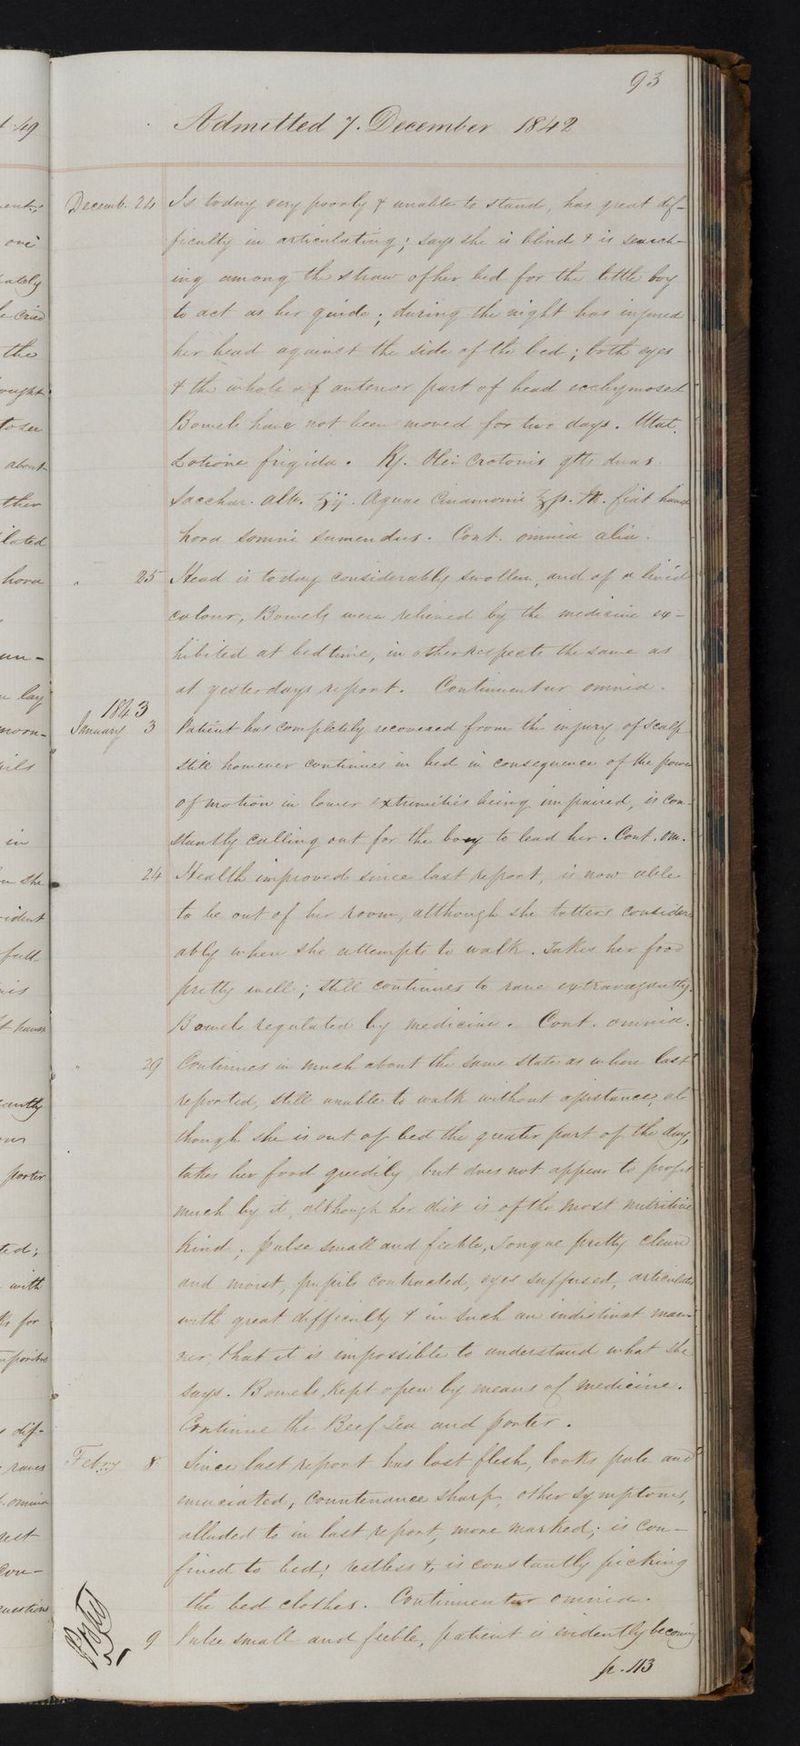 93
Admitted 7. December 1842
Decemb. 24 Is today very poorly & unable to stand, has great dif-
ficulty in articulating; says she is blind & is search-
ing among the straw of her bed for the little boy
to act as her guide; during the night has injured
her head against the side of the bed; both eyes
& the whole of anterior part of head ecchymosed
Bowels have not been moved for two days. Utat.
Lotione frigida. Rx. Olei Crotonis gtts duas.
Sacchar. alb. ʒij. Aquae Cinnamomi ℥ss. M. fiat haust
hora somni sumendus. Cont. omnia alia.
" 25 Head is today considerably swollen, and of a livid
colour, Bowels were relieved by the medicine ex-
hibited at bedtime, in other respects the same as
at yesterdays report. Continuentur omnia.
1843
January 3 Patient has completely recovered from the injury of scalp
still however continues in bed in consequence of the power
of motion in lower extremities being impaired, is con-
stantly calling out for the boy to lead her. Cont. om.
24 Health improved since last report, is now able
to be out of her room, although she totters consider
ably when she attempts to walk. Takes her food
pretty well; still continues to rave extravagantly.
Bowels regulated by medicine. Cont. omnia.
" 29 Continues in much about the same state as when last
reported, still unable to walk without assistance, al
though she is out of bed the greater part of the day,
takes her food greedily, but does not appear to profit
much by it, although her diet is of the most nutritive
kind; pulse small and feeble, Tongue pretty clean
and moist, pupils contracted, eyes suffused, articulates
with great difficulty & in such an indistinct man-
ner, that it is impossible to understand what she
says. Bowels kept open by means of medicine.
Continue the Beef Tea and porter.
Feby 8 Since last report has lost flesh, looks pale and
emaciated, countenance sharp, other symptoms,
alluded to in last report, more marked; is con-
fined to bed; restless &, is constantly picking
the bed clothes. Continuentur omnia.
9 Pulse small and feeble, patient is evidently becoming
p. 113